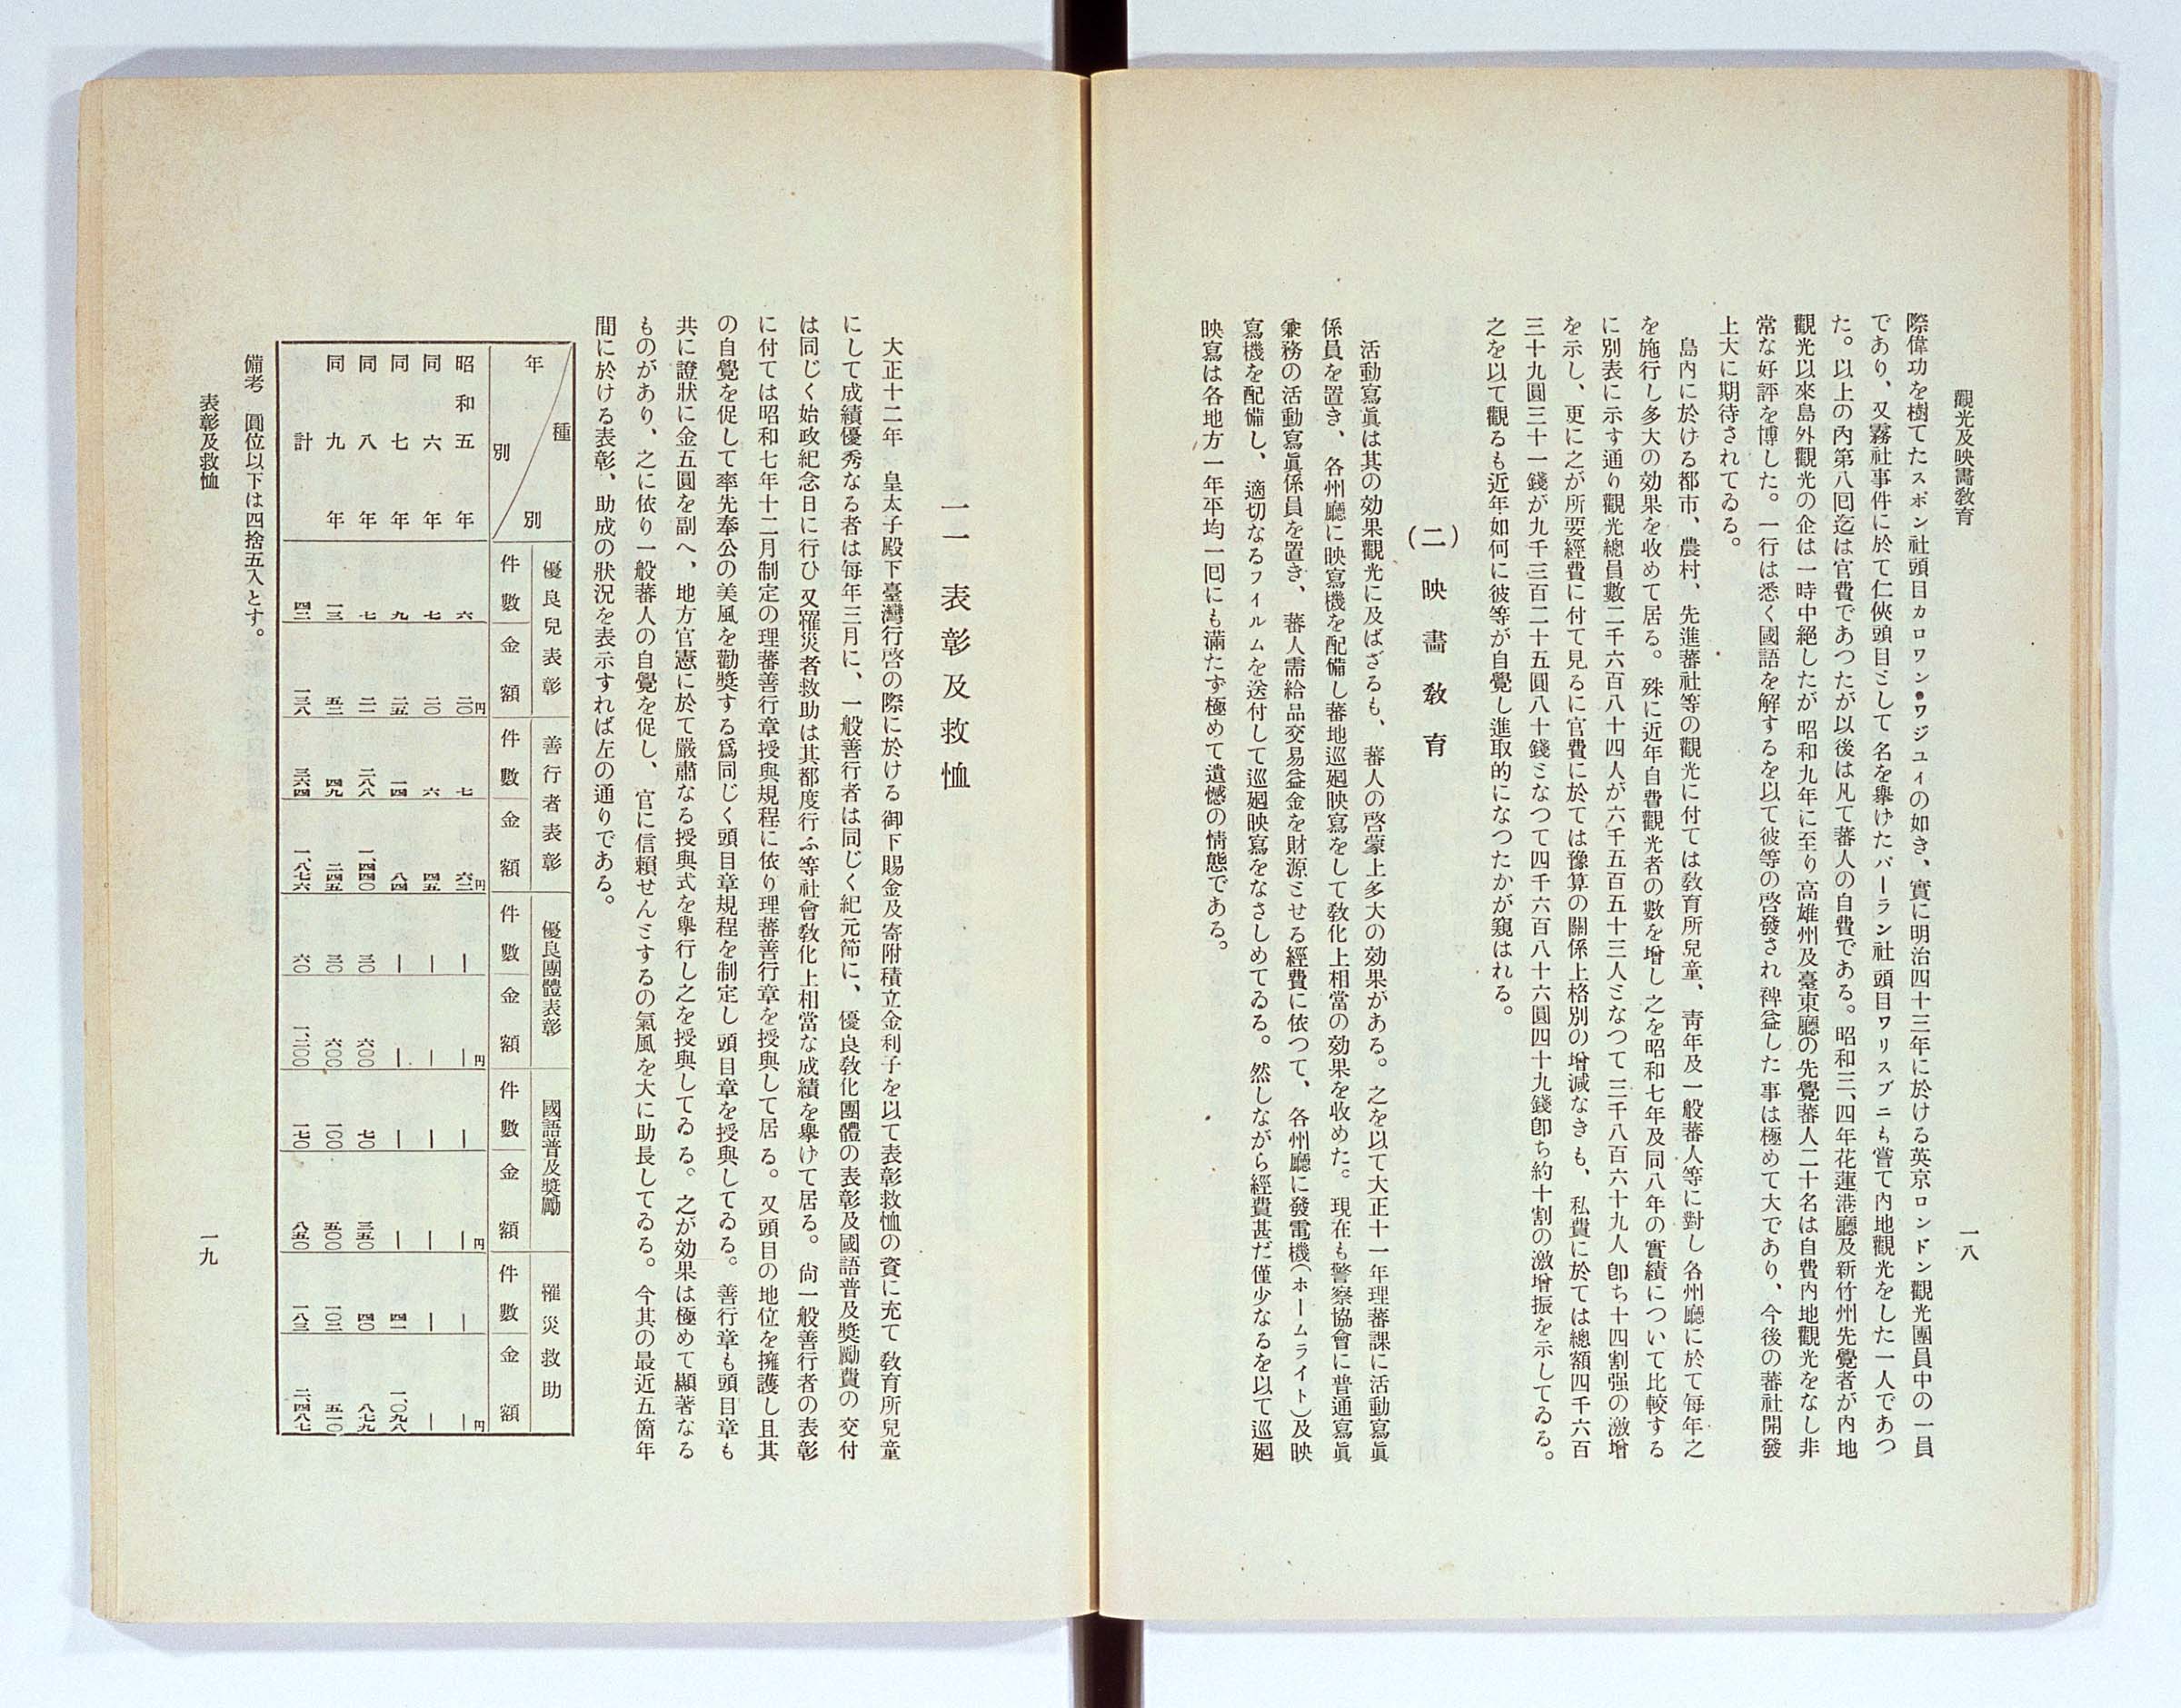 觀光及映畫敎育
一八
際偉功を樹てたスボン社頭目カロワン・ワジユイの如き、實に明治四十三年に於ける英京ロンドン觀光團員中の一員
であり、又霧社事件に於て仁俠頭目として名を擧げたパーラン社頭目ワリスブニも嘗て内地觀光をした一人であつ
た。以上の内第八囘迄は官費であつたが以後は凡て蕃人の自費である。昭和三、四年花蓮港廳及新竹州先覺者が内地
觀光以來島外觀光の企は一時中絶したが昭和九年に至り高雄州及臺東廳の先覺蕃人二十名は自費内地觀光をなし非
常な好評を博した。一行は悉く國語を解するを以て彼等の啓發され裨益した事は極めて大であり、今後の蕃社開發
上大に期待されてゐる。
島内に於ける都市、農村、先進蕃社等の觀光に付ては敎育所兒童、靑年及一般蕃人等に對し各州廳に於て每年之
を施行し多大の効果を收めて居る。殊に近年自費觀光者の數を增し之を昭和七年及同八年の實績について比較する
に別表に示す通り觀光總員數二千六百八十四人が六千五百五十三人となつて三千八百六十九人卽ち十四割强の激增
を示し、更に之が所要經費に付て見るに官費に於ては豫算の關係上格別の增減なきも、私費に於ては總額四千六百
三十九圓三十一錢が九千三百二十五圓八十錢となつて四千六百八十六圓四十九錢卽ち約十割の激增振を示してゐる。
之を以て觀るも近年如何に彼等が自覺し進取的になつたかが窺はれる。
(二) 映畫敎育
活動寫眞は其の効果觀光に及ばざるも、蕃人の啓蒙上多大の効果がある。之を以て大正十一年理蕃課に活動寫眞
係員を置き、各州廳に映寫機を配備し蕃地巡廻映寫をして敎化上相當の効果を收めた。現在も警察協會に普通寫眞
兼務の活動寫眞係員を置き、蕃人需給品交易益金を財源とせる經費に依つて、各州廳に發電機(ホームライト)及映
寫機を配備し、適切なるフイルムを送付して巡廻映寫をなさしめてゐる。然しながら經費甚だ僅少なるを以て巡廻
映寫は各地方一年平均一囘にも滿たず極めて遺憾の情態である。
一一 表彰及救恤
大正十二年 皇太子殿下臺灣行啓の際に於ける御下賜金及寄附積立金利子を以て表彰救恤の資に充て敎育所兒童
にして成績優秀なる者は每年三月に、一般善行者は同じく紀元節に、優良敎化團體の表彰及國語普及奬勵費の交付
は同じく始政紀念日に行ひ又罹災者救助は其都度行ふ等社會敎化上相當な成績を擧げて居る。尙一般善行者の表彰
に付ては昭和七年十二月制定の理蕃善行章授與規程に依り理蕃善行章を授與して居る。又頭目の地位を擁護し且其
の自覺を促して率先奉公の美風を勸奬する爲同じく頭目章規程を制定し頭目章を授與してゐる。善行章も頭目章も
共に證狀に金五圓を副へ、地方官憲に於て嚴肅なる授與式を擧行し之を授與してゐる。之が効果は極めて顯著なる
ものがあり、之に依り一般蕃人の自覺を促し、官に信賴せんとするの氣風を大に助長してゐる。今其の最近五箇年
間に於ける表彰、助成の狀況を表示すれば左の通りである。
種別 年別 優良兒表彰 善行者表彰 優良團體表彰 國語普及奬勵 罹災救助
件數 金額 件數 金額 件數 金額 件數 金額 件數 金額
昭和五年 六 三〇円 七 六二円 ― ―円 ― ―円 ― ―円
同六年 七 二〇 六 四五 ― ― ― ― ― ―
同七年 九 二五 一四 八四 ― ― ― ― 四一 一、〇九八
同八年 七 二一 二八八 一、四四〇 三〇 六〇〇 七〇 三五〇 四〇 八七九
同九年 一三 五二 四九 二四五 三〇 六〇〇 一〇〇 五〇〇 一〇二 五一〇
計 四二 一三八 三六四 一、八七六 六〇 一、二〇〇 一七〇 八五〇 一八三 二、四八七
備考 圓位以下は四捨五入とす。
表彰及救恤
一九